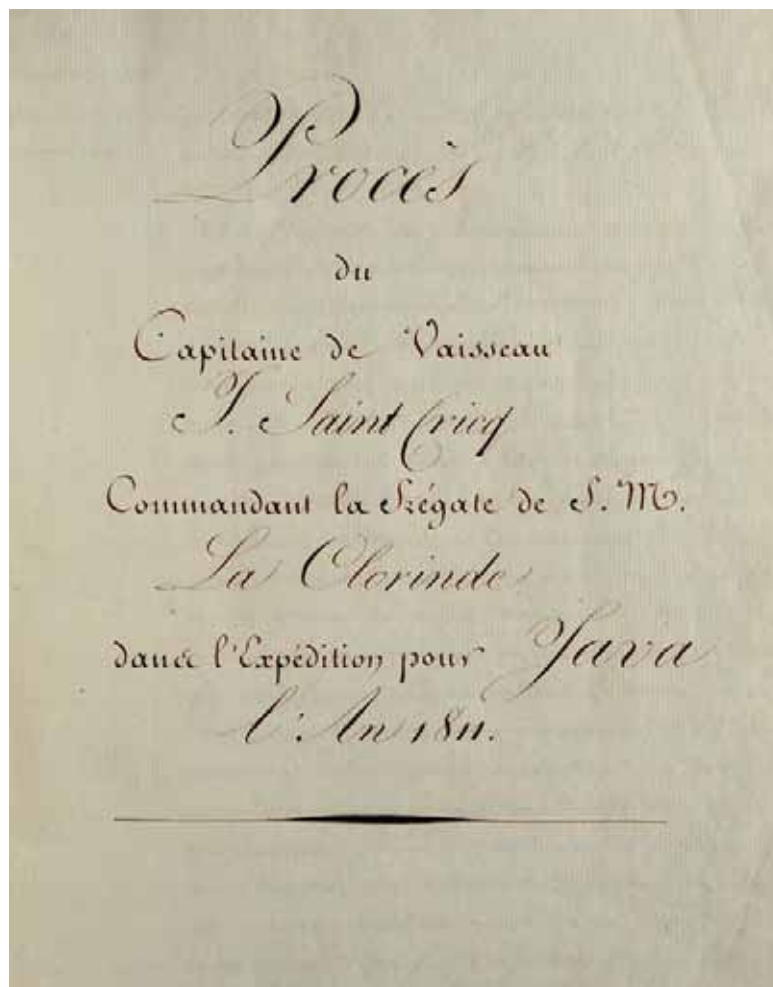 Procès
du
Capitaine de Vaisseau
J. Saint Cricq
Commandant la Frégate de S. M.
La Clorinde
dans l'Expédition pour Java
l'An 1811.